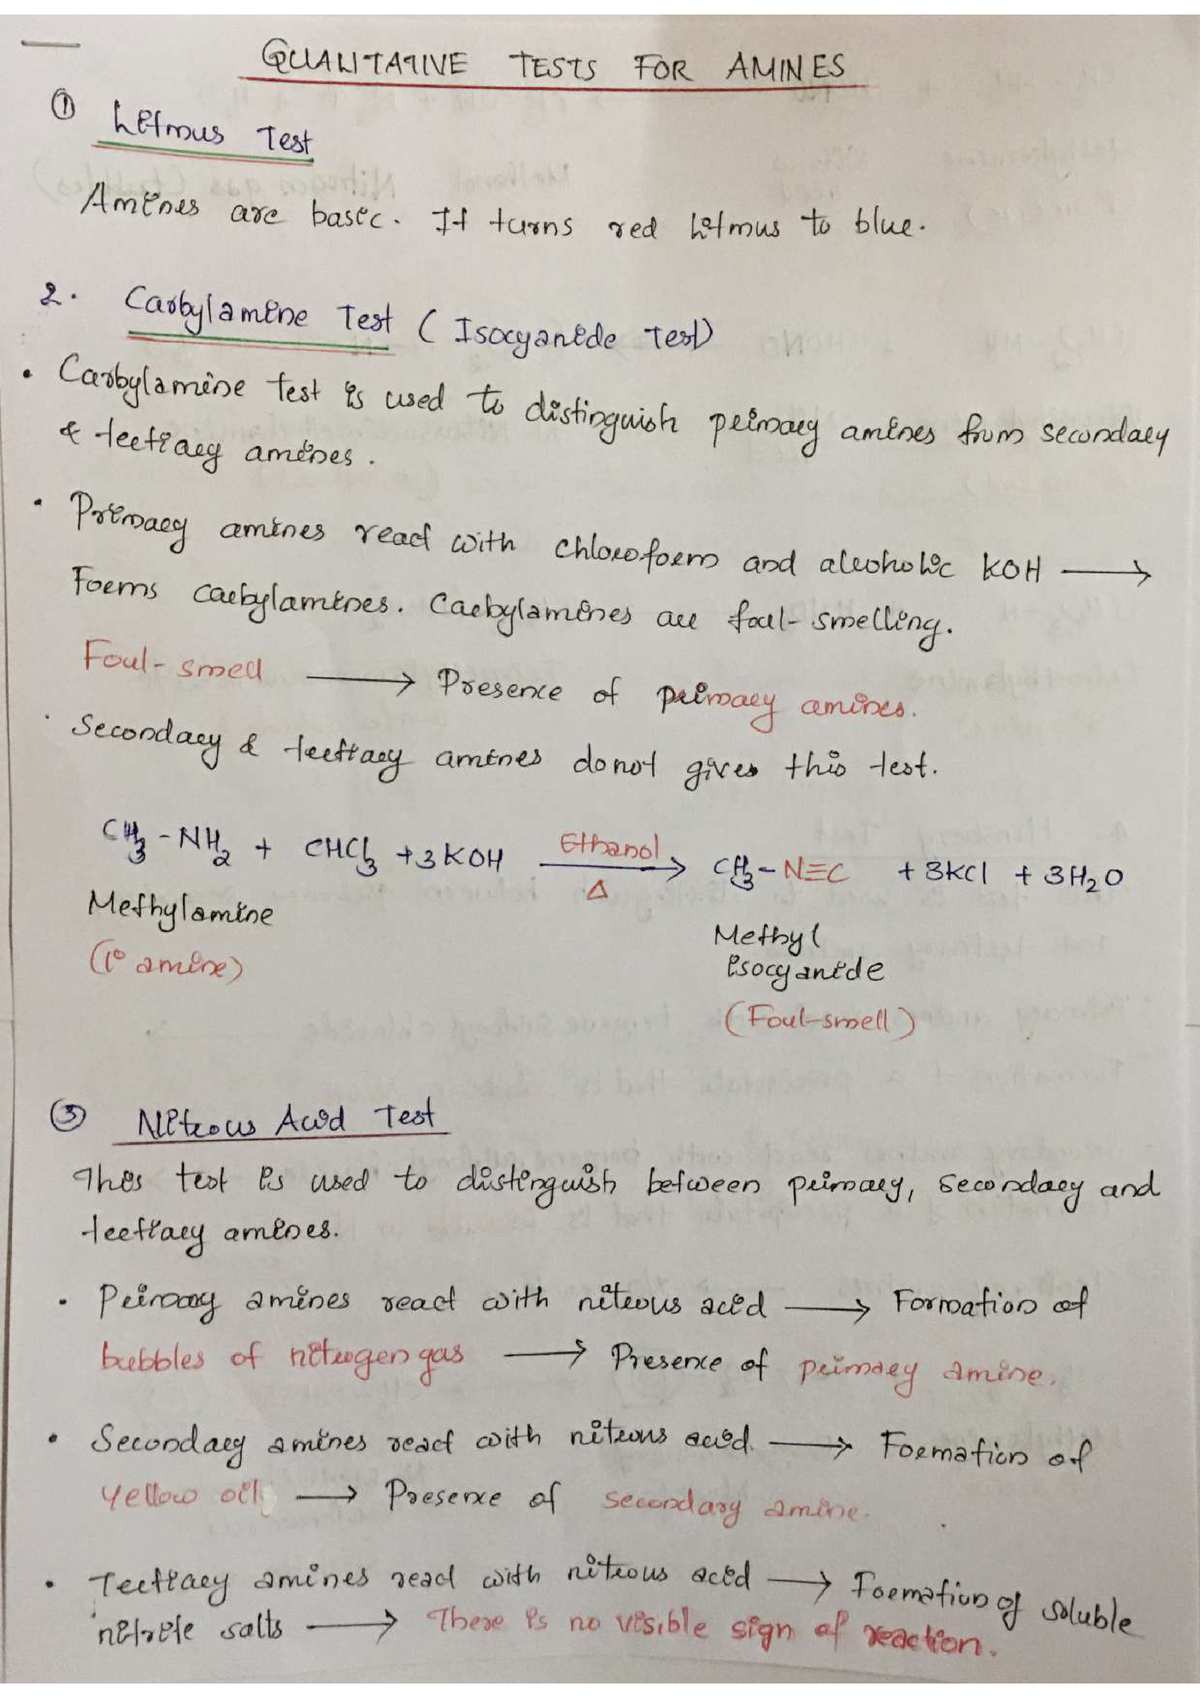 QUALITATIVE TESTS FOR AMINES
① Litmus Test
Amines are basic. It turns red litmus to blue.
2. Carbylamine Test (Isocyanide Test)
• Carbylamine test is used to distinguish primary amines from secondary
& tertiary amines.
• Primary amines react with chloroform and alcoholic KOH ⟶
Forms carbylamines. Carbylamines are foul-smelling.
Foul-smell ⟶ Presence of primary amines.
• Secondary & tertiary amines do not gives this test.
CH₃-NH₂ + CHCl₃ +3KOH Ethanol ⟶ Δ CH₃-N≡C + 3KCl + 3H₂O
Methylamine Methyl
(1° amine) isocyanide
(Foul-smell)
③ Nitrous Acid Test
This test is used to distinguish between primary, secondary and
tertiary amines.
• Primary amines react with nitrous acid ⟶ Formation of
bubbles of nitrogen gas ⟶ Presence of primary amine.
• Secondary amines react with nitrous acid. ⟶ Formation of
yellow oil ⟶ Presence of secondary amine.
• Tertiary amines react with nitrous acid ⟶ Formation of soluble
nitrite salts ⟶ There is no visible sign of reaction.